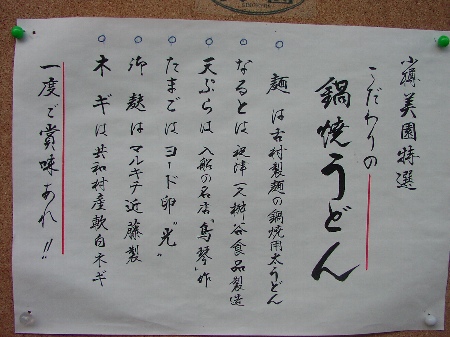 小樽美園特選
こだわりの
鍋焼うどん
○ 麺は吉村製麺の鍋焼用太うどん
○ なるとは 一八 樹谷食品製造
○ 天ぷらは 入船の名店「鳥琴」作
○ たまごは ヨード卵"光"
○ 御麩は マルキチ近藤製
○ ネギは 共和村産軟白ネギ
一度ご賞味あれ!!